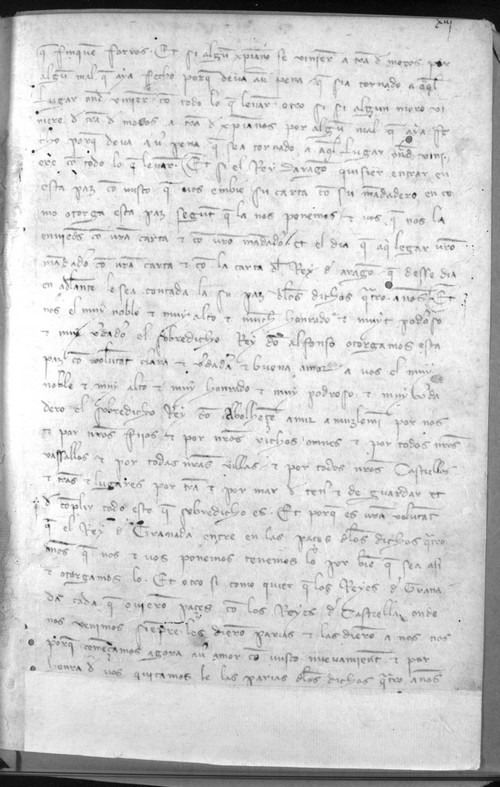 xiij
q̄ finquē forros. Et si algū xpīano se viniere a tr̄a d moros por
algū mal q̄ aya fecho porq̄ deva aver pena q̄ sia tornado a aql̄
lugar ond vinier cō todo lo q̄ levar. otro si si algun moro vi
niere d tr̄a d moros a tr̄a d xpīanos por algū mal q̄ aya fe
cho porq̄ deva av̄ pena q̄ sea tornado a aql̄ lugar ond vini
ere cō todo lo q̄ levar. Et si el Rey daragō quisier entrar en
esta paz cō nusco q̄ nos embie su carta cō su mādadero en co
mo otorga esta paz segunt q̄ la nos ponemos τ vos q̄ nos la
enviedes cō vr̄a carta τ cō vr̄o mādadō. Et el dia q̄ aq̄ legar vr̄o
mādado cō vr̄a carta τ cō la carta dl Rey d aragō q̄ desse dia
en adlante le sea contada la su paz dlos dichos qt̄ro anos. Et
nos el muy noble τ muy alto τ mucħ honrado τ muyt podoso
τ muy vdadō el sobredicho Rey dō alfonso otorgamos esta
paz cō volūtat clara τ vdadā τ buena amor a vos el muy
noble τ muy alto τ muy honrado τ muy podroso τ muy vda
dero el sobredicho Rey dō Abolhaçē amir amuzlemī por nos
τ por nr̄os fijos τ por nr̄os richos omnes τ por todos nr̄os
vassallos τ por todas nr̄as villas τ por todos nr̄os Castellos
τ tr̄as τ lugares por tr̄a τ por mar d ten τ de guardar et
d cōplir todo esto q̄ sobredicho es. Et porq̄ es vr̄a volūtat
q̄ el Rey d Granada entre en las paces dlos dichos qt̄ro
anos q̄ nos τ vos ponemos tenemos lo por biē q̄ sea asi
τ otorgamos lo. Et otro si como quier q̄ los Reyes d Grana
da cada q̄ oviero paçes cō los Reyes d Castella onde
nos venimos siepre les dierō parias τ las dierō a nos
porq̄ comēçamos agora av̄ amor cō vusco nuevament τ por
onra d vos quitamos le las parias dlos dichos qt̄ro anos